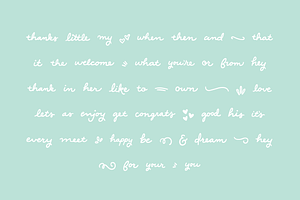 thanks little my when then and that
it the welcome what you're or from hey
thank in her like to own love
lets as enjoy get congrats good his its
every meet so happy be & dream hey
for your you